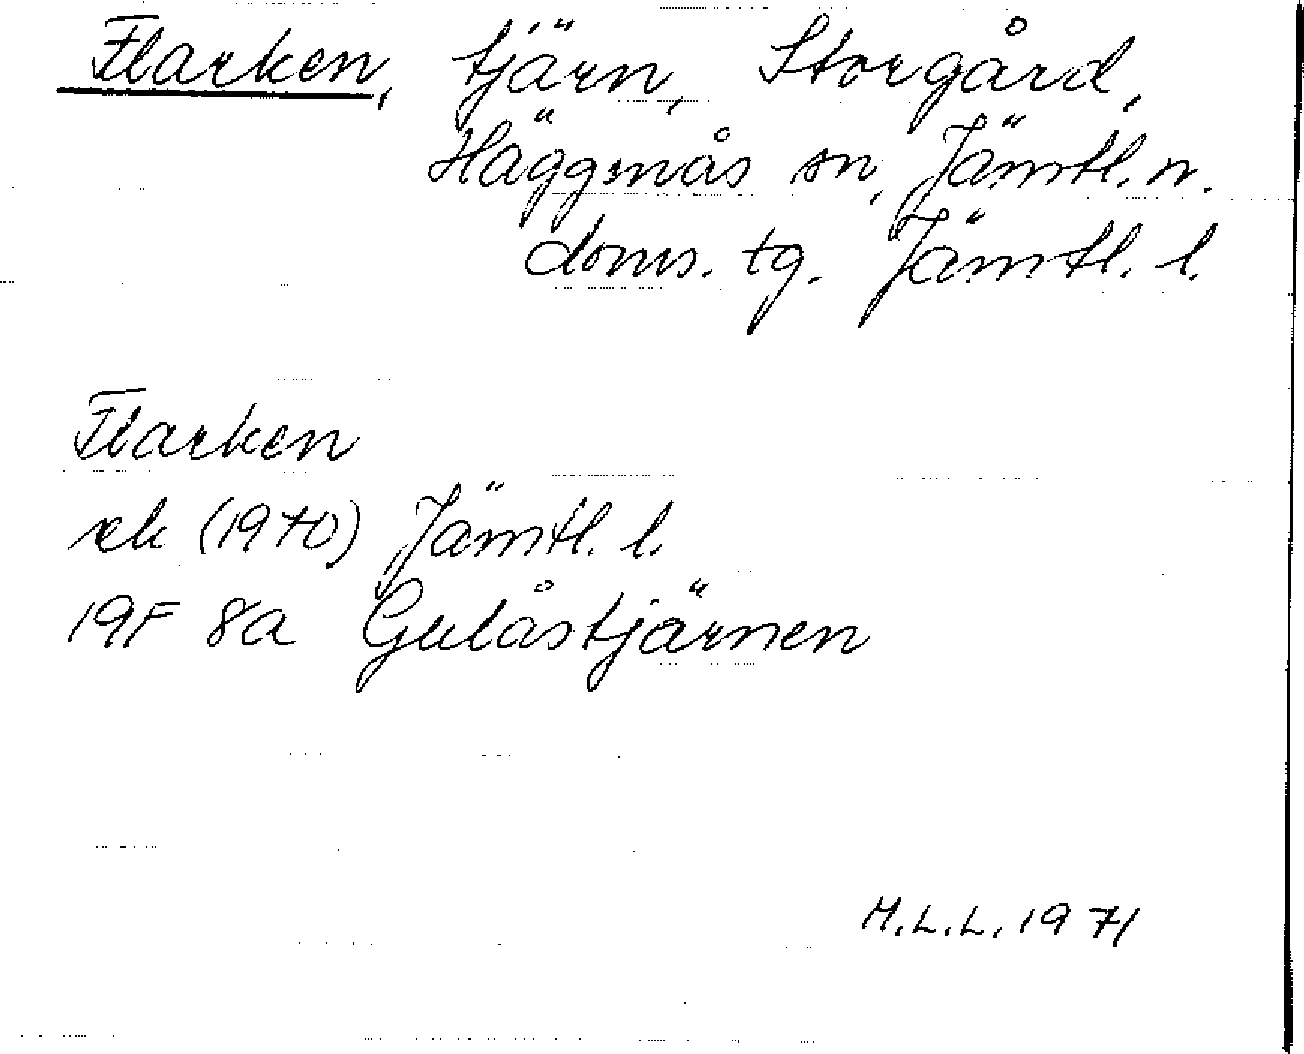 Flarken, tjärn, Storgård,
Häggenås sn, Jämtl. n.
doms. tg. Jämtl. l.
Flarken
ek (1970) Jämtl. l.
19F 8a Gulåstjärnen
M.L.L. 1971